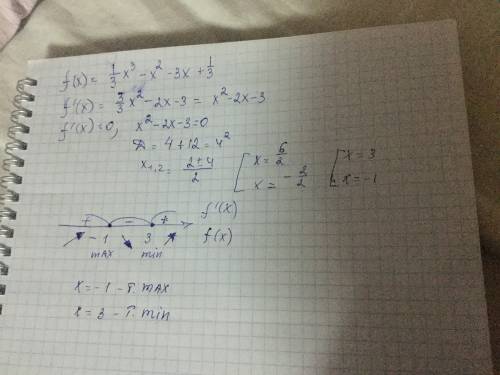 f(x) = 1/3 x³ - x² - 3x + 1/3
f'(x) = 3/3 x² - 2x - 3 = x² - 2x - 3
f'(x) = 0, x² - 2x - 3 = 0
D = 4 + 12 = 4²
x₁,₂ = (2 ± 4)/2 [ x = 6/2 [ x = 3
x = - 2/2 x = -1
+ - + f'(x)
-1 3 f(x)
max min
x = -1 - т. max
x = 3 - т. min